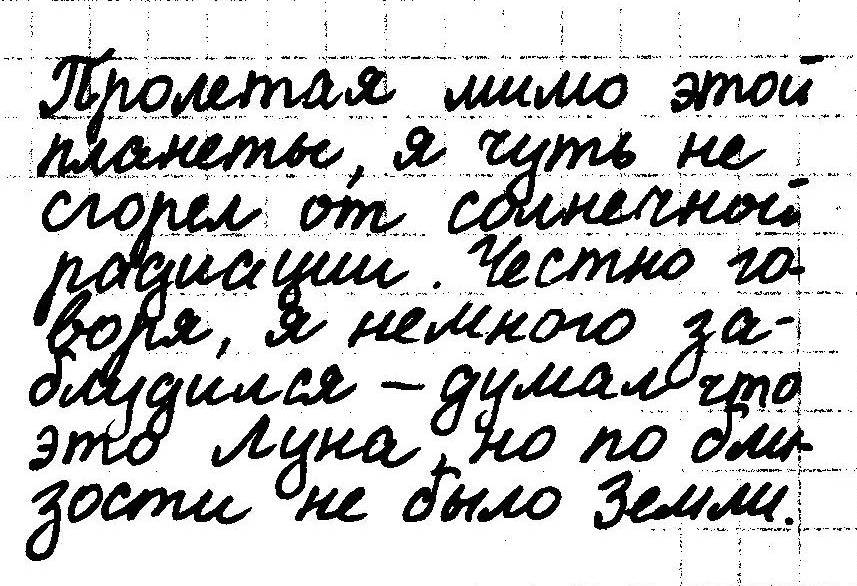 Пролетая мимо этой
планеты, я чуть не
сгорел от солнечной
радиации. Честно го-
воря, я немного за-
блудился – думал что
это Луна, но по бли-
зости не было Земли.